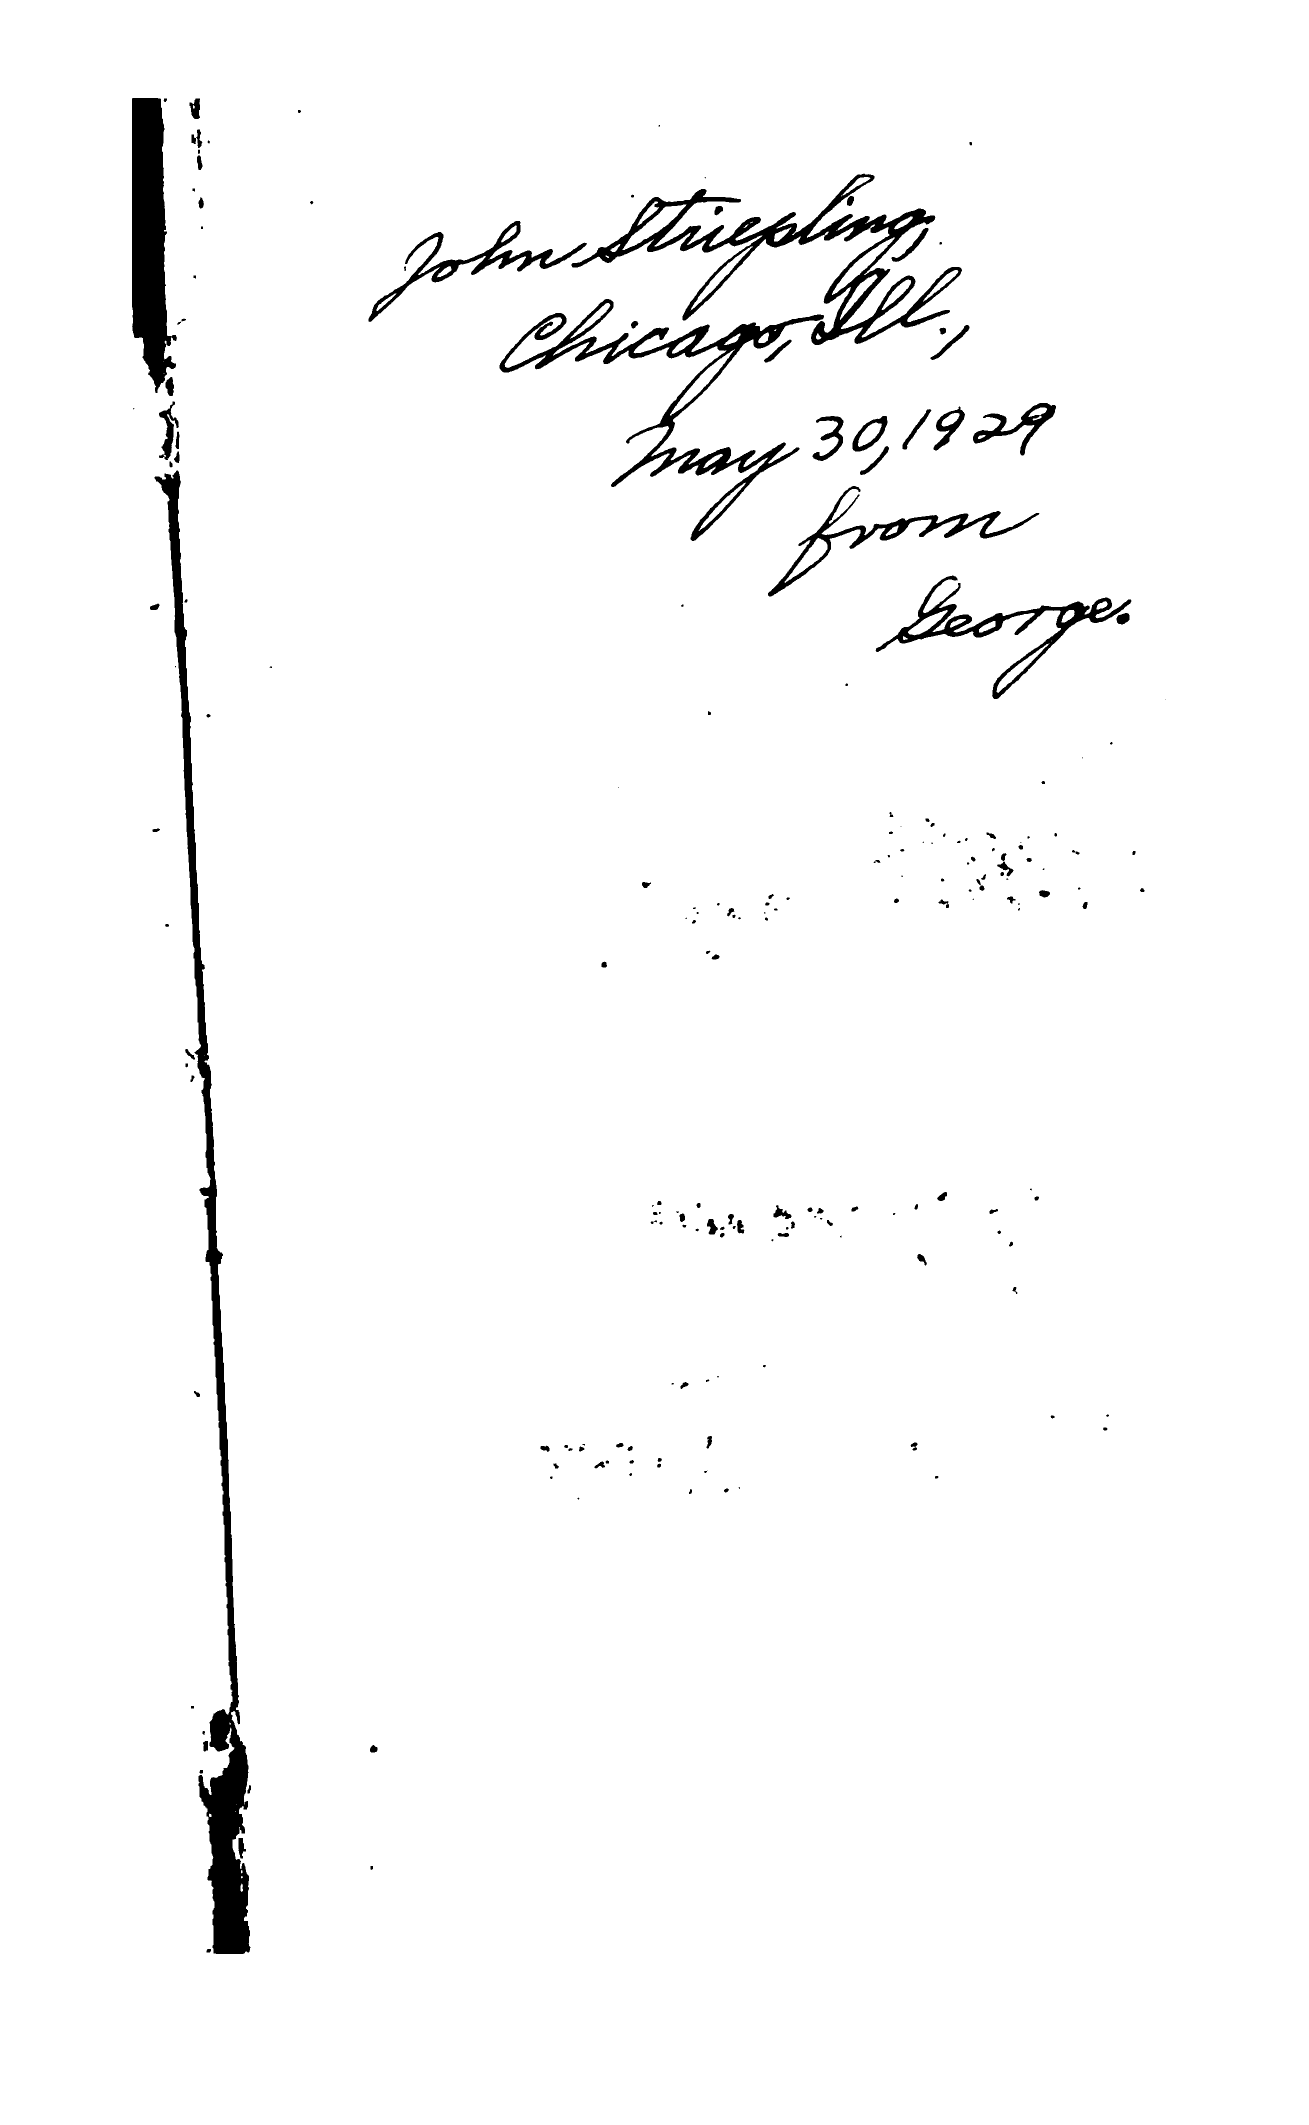 John Striepling,
Chicago, Ill.,
May 30, 1929
from
George.